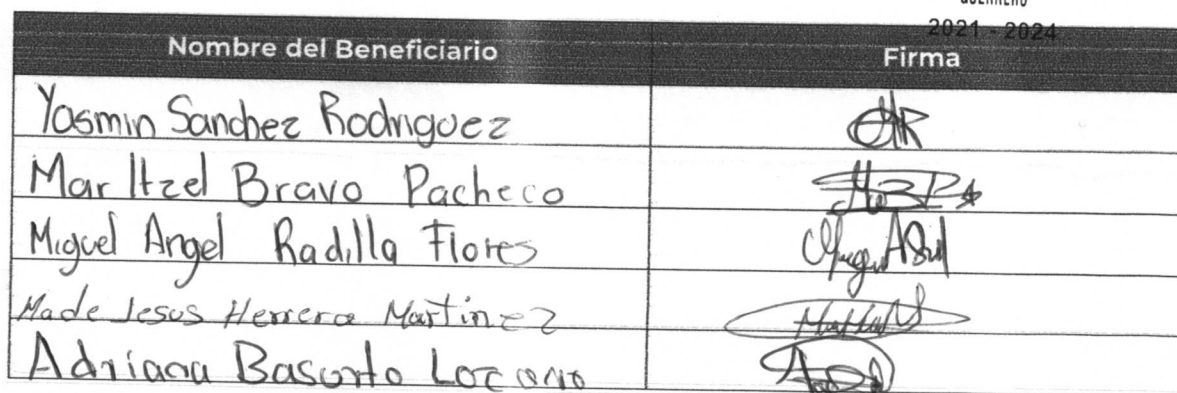 GUERRERO
2021 - 2024
Nombre del Beneficiario Firma
Yasmin Sanchez Rodriguez
Mar Itzel Bravo Pacheco
Miguel Angel Radilla Flores
Ma de Jesus Herrera Martinez
Adriana Basurto Lozano